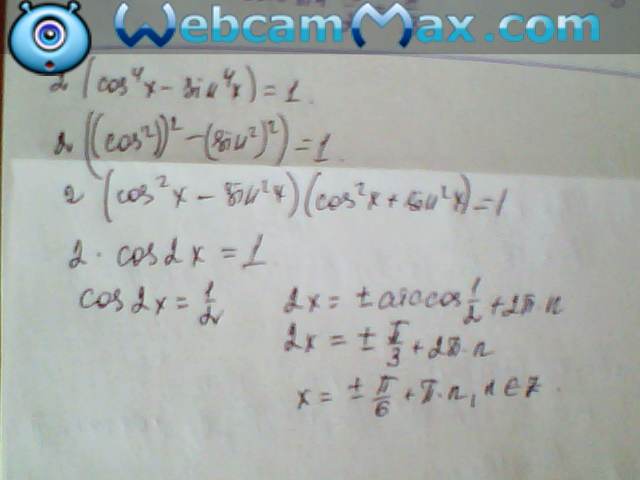 WebcamMax.com
2 (cos⁴x − sin⁴x) = 1.
2 ((cos²))² − (sin²)²) = 1.
2 (cos²x − sin²x)(cos²x + sin²x) = 1
2 · cos2x = 1
cos2x = 1/2
2x = ± arccos 1/2 + 2π·n
2x = ± π/3 + 2π·n
x = ± π/6 + π·n, n ∈ z.